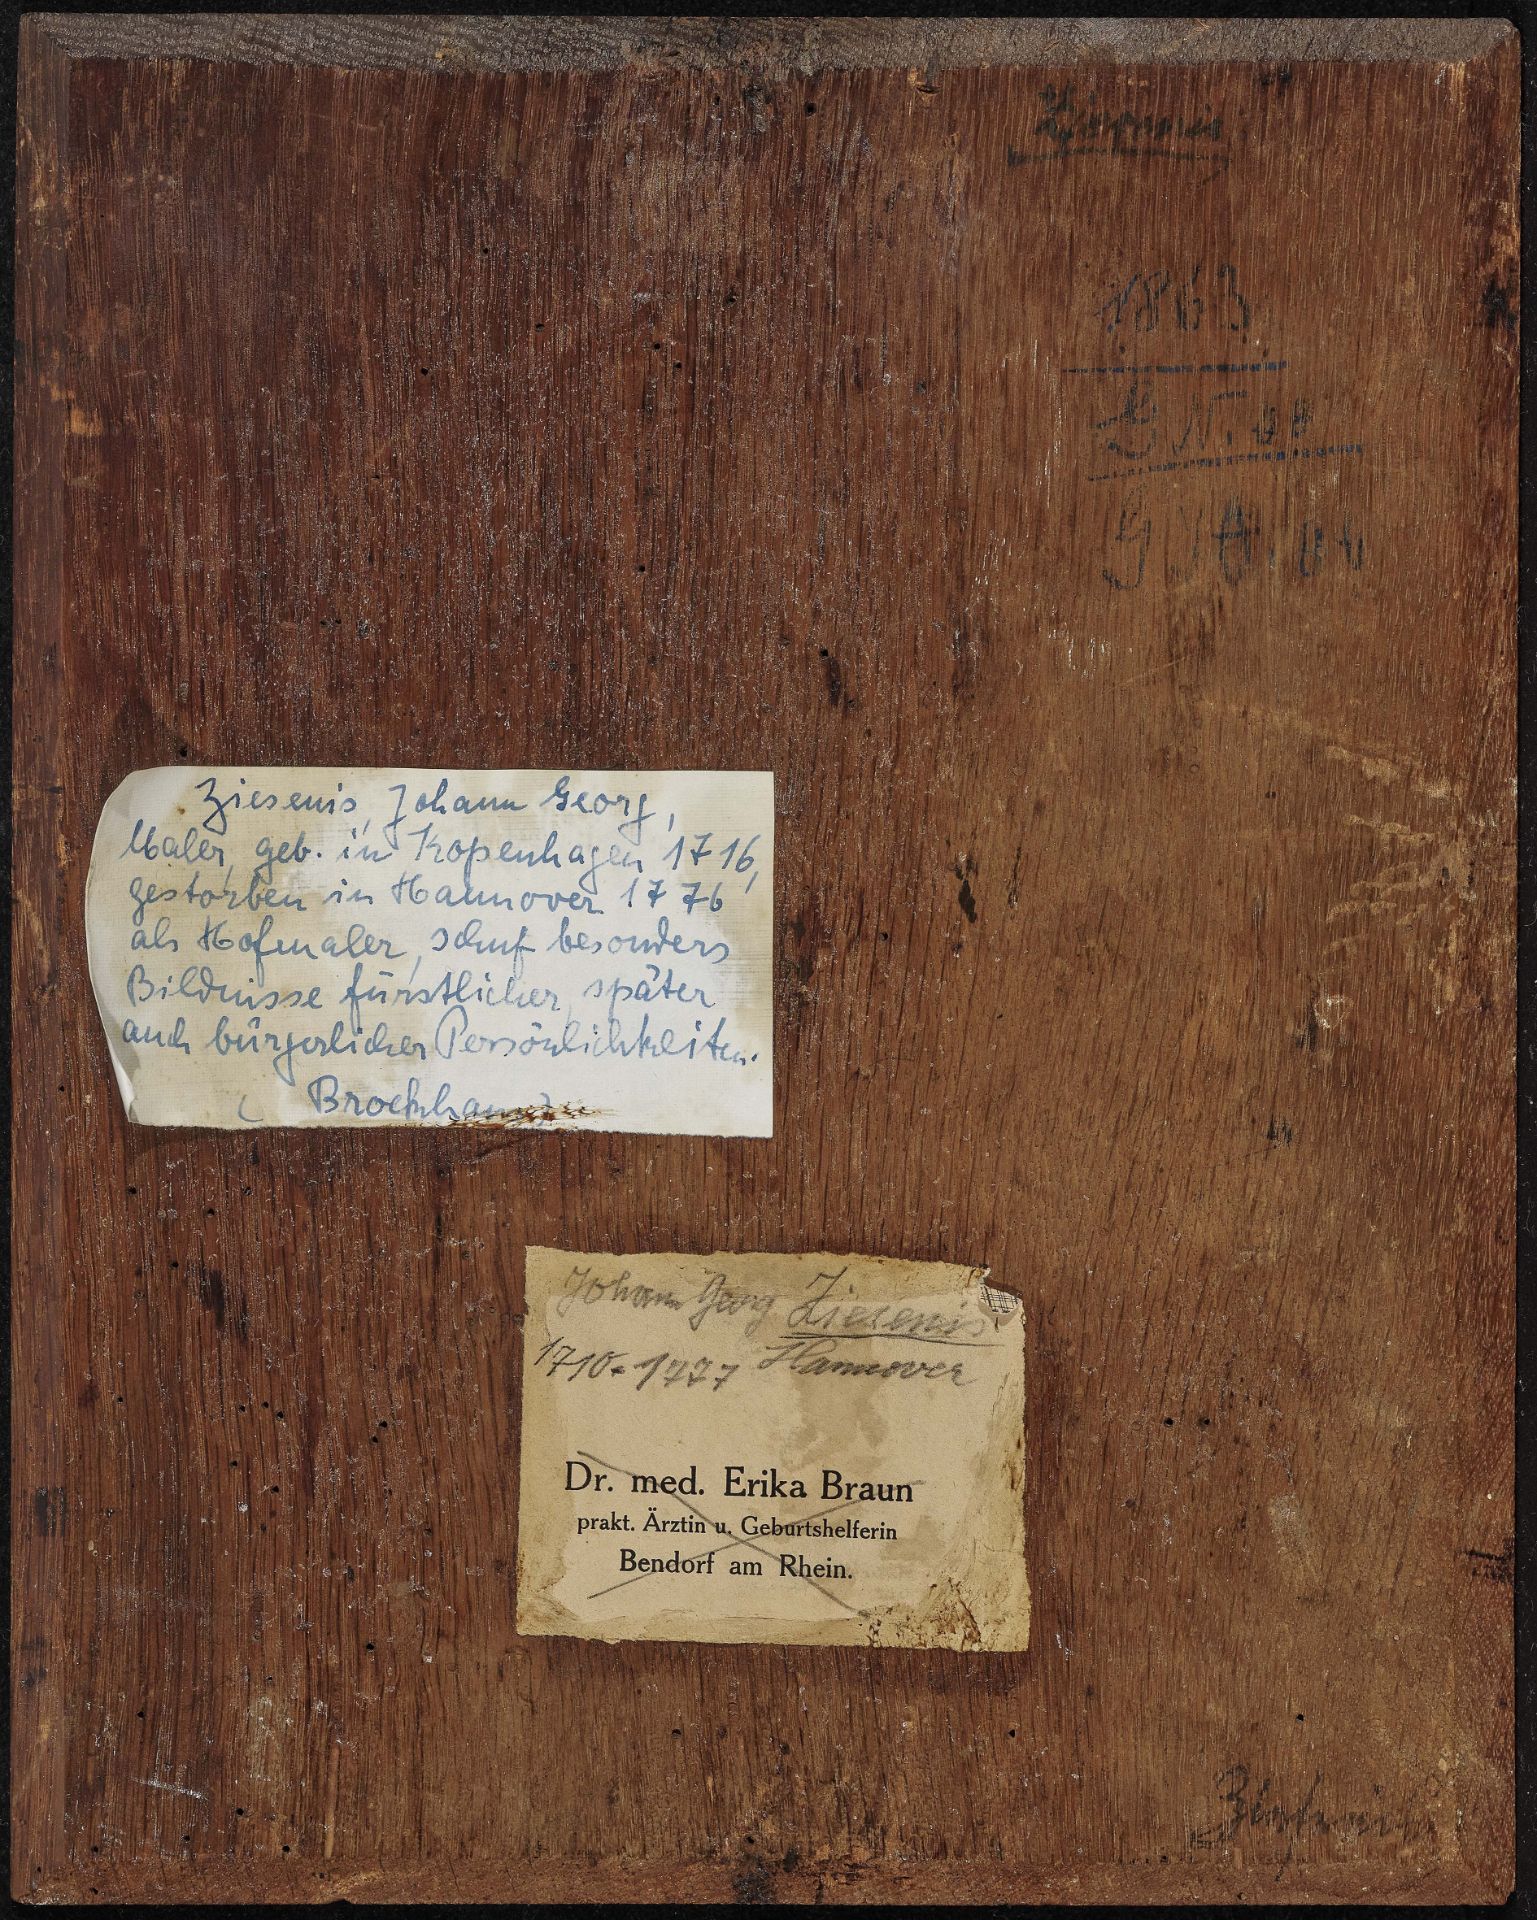 1863
Ziesenis, Johann Georg,
Maler, geb. in Kopenhagen 1716,
gestorben in Hannover 1776
als Hofmaler, schuf besonders
Bildnisse fürstlicher, später
auch bürgerlicher Persönlichkeiten.
( Brockhaus)
Johann Georg Ziesenis
1710-1777 Hannover
Dr. med. Erika Braun
prakt. Ärztin u. Geburtshelferin
Bendorf am Rhein.